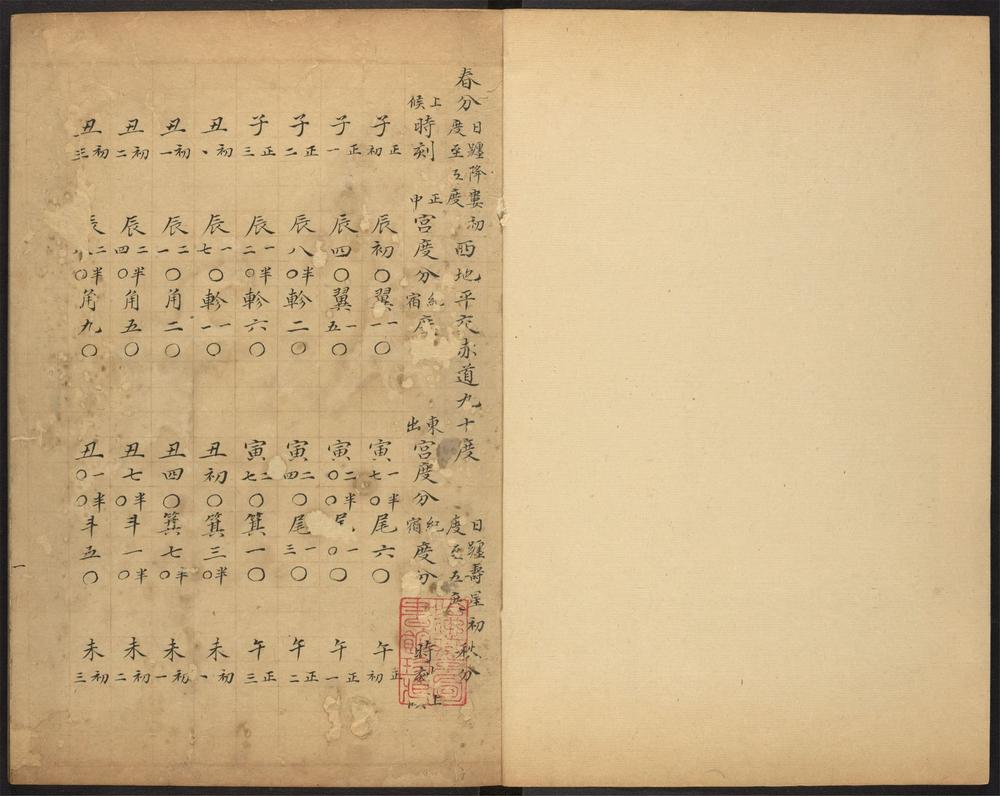 春分日躔降婁初度至五度西地平交赤道九十度日躔壽星初度至五度秋分
上候時刻正中宮度分紀宿度東出宮度分紀宿度分時刻上
子正初辰初〇翼一一〇寅一七半〇尾六〇午正初
子正一辰四〇翼一五〇寅二〇半〇一〇〇午正一
子正二辰八半〇軫二〇寅二四〇尾一三〇午正二
子正三辰一二半〇軫六〇寅二七〇箕一〇午正三
丑初、辰一七〇軫一一〇丑初〇箕三半〇未初、
丑初一辰二一〇角二〇丑四〇箕七半〇未初一
丑初二辰二四半〇角五〇丑七半〇斗一半〇未初二
丑初三辰二半〇角九〇丑一〇半〇斗五〇未初三
一